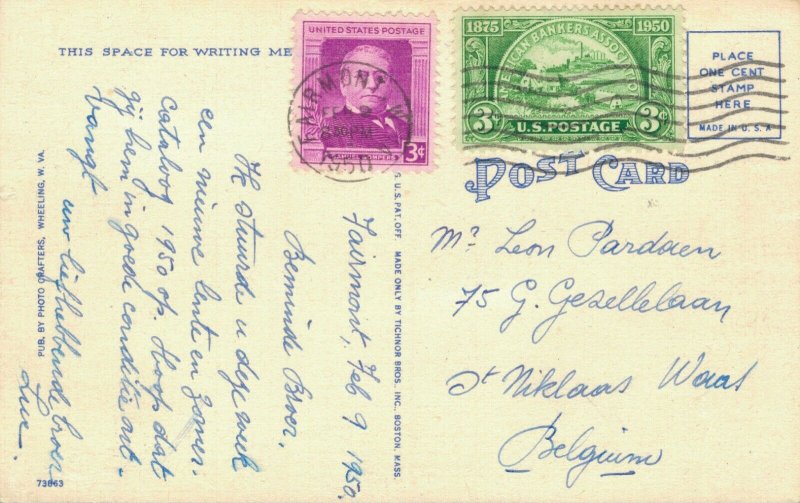 THIS SPACE FOR WRITING ME
UNITED STATES POSTAGE
3¢
FAIRMONT, W.
FEB 9
1950
1875 AMERICAN BANKERS ASSOCIATION 1950
3¢ U.S. POSTAGE 3¢
PLACE
ONE CENT
STAMP
HERE
MADE IN U.S.A
POST CARD
Fairmont, Feb 9 1950.
Beminde Broer.
Ik stuurde u deze week
een nieuwe lente en zomer
cataloog 1950 op. Hoop dat
gij hem in goede conditie ont-
vangt
uw liefhebbende broer
Luc.
Mr Leon Pardaen
75 G. Gezellelaan
St Niklaas Waas
Belgium
PUB. BY PHOTO CRAFTERS, WHEELING, W. VA.
G. U.S. PAT. OFF. MADE ONLY BY TICHNOR BROS. INC. BOSTON, MASS.
73863